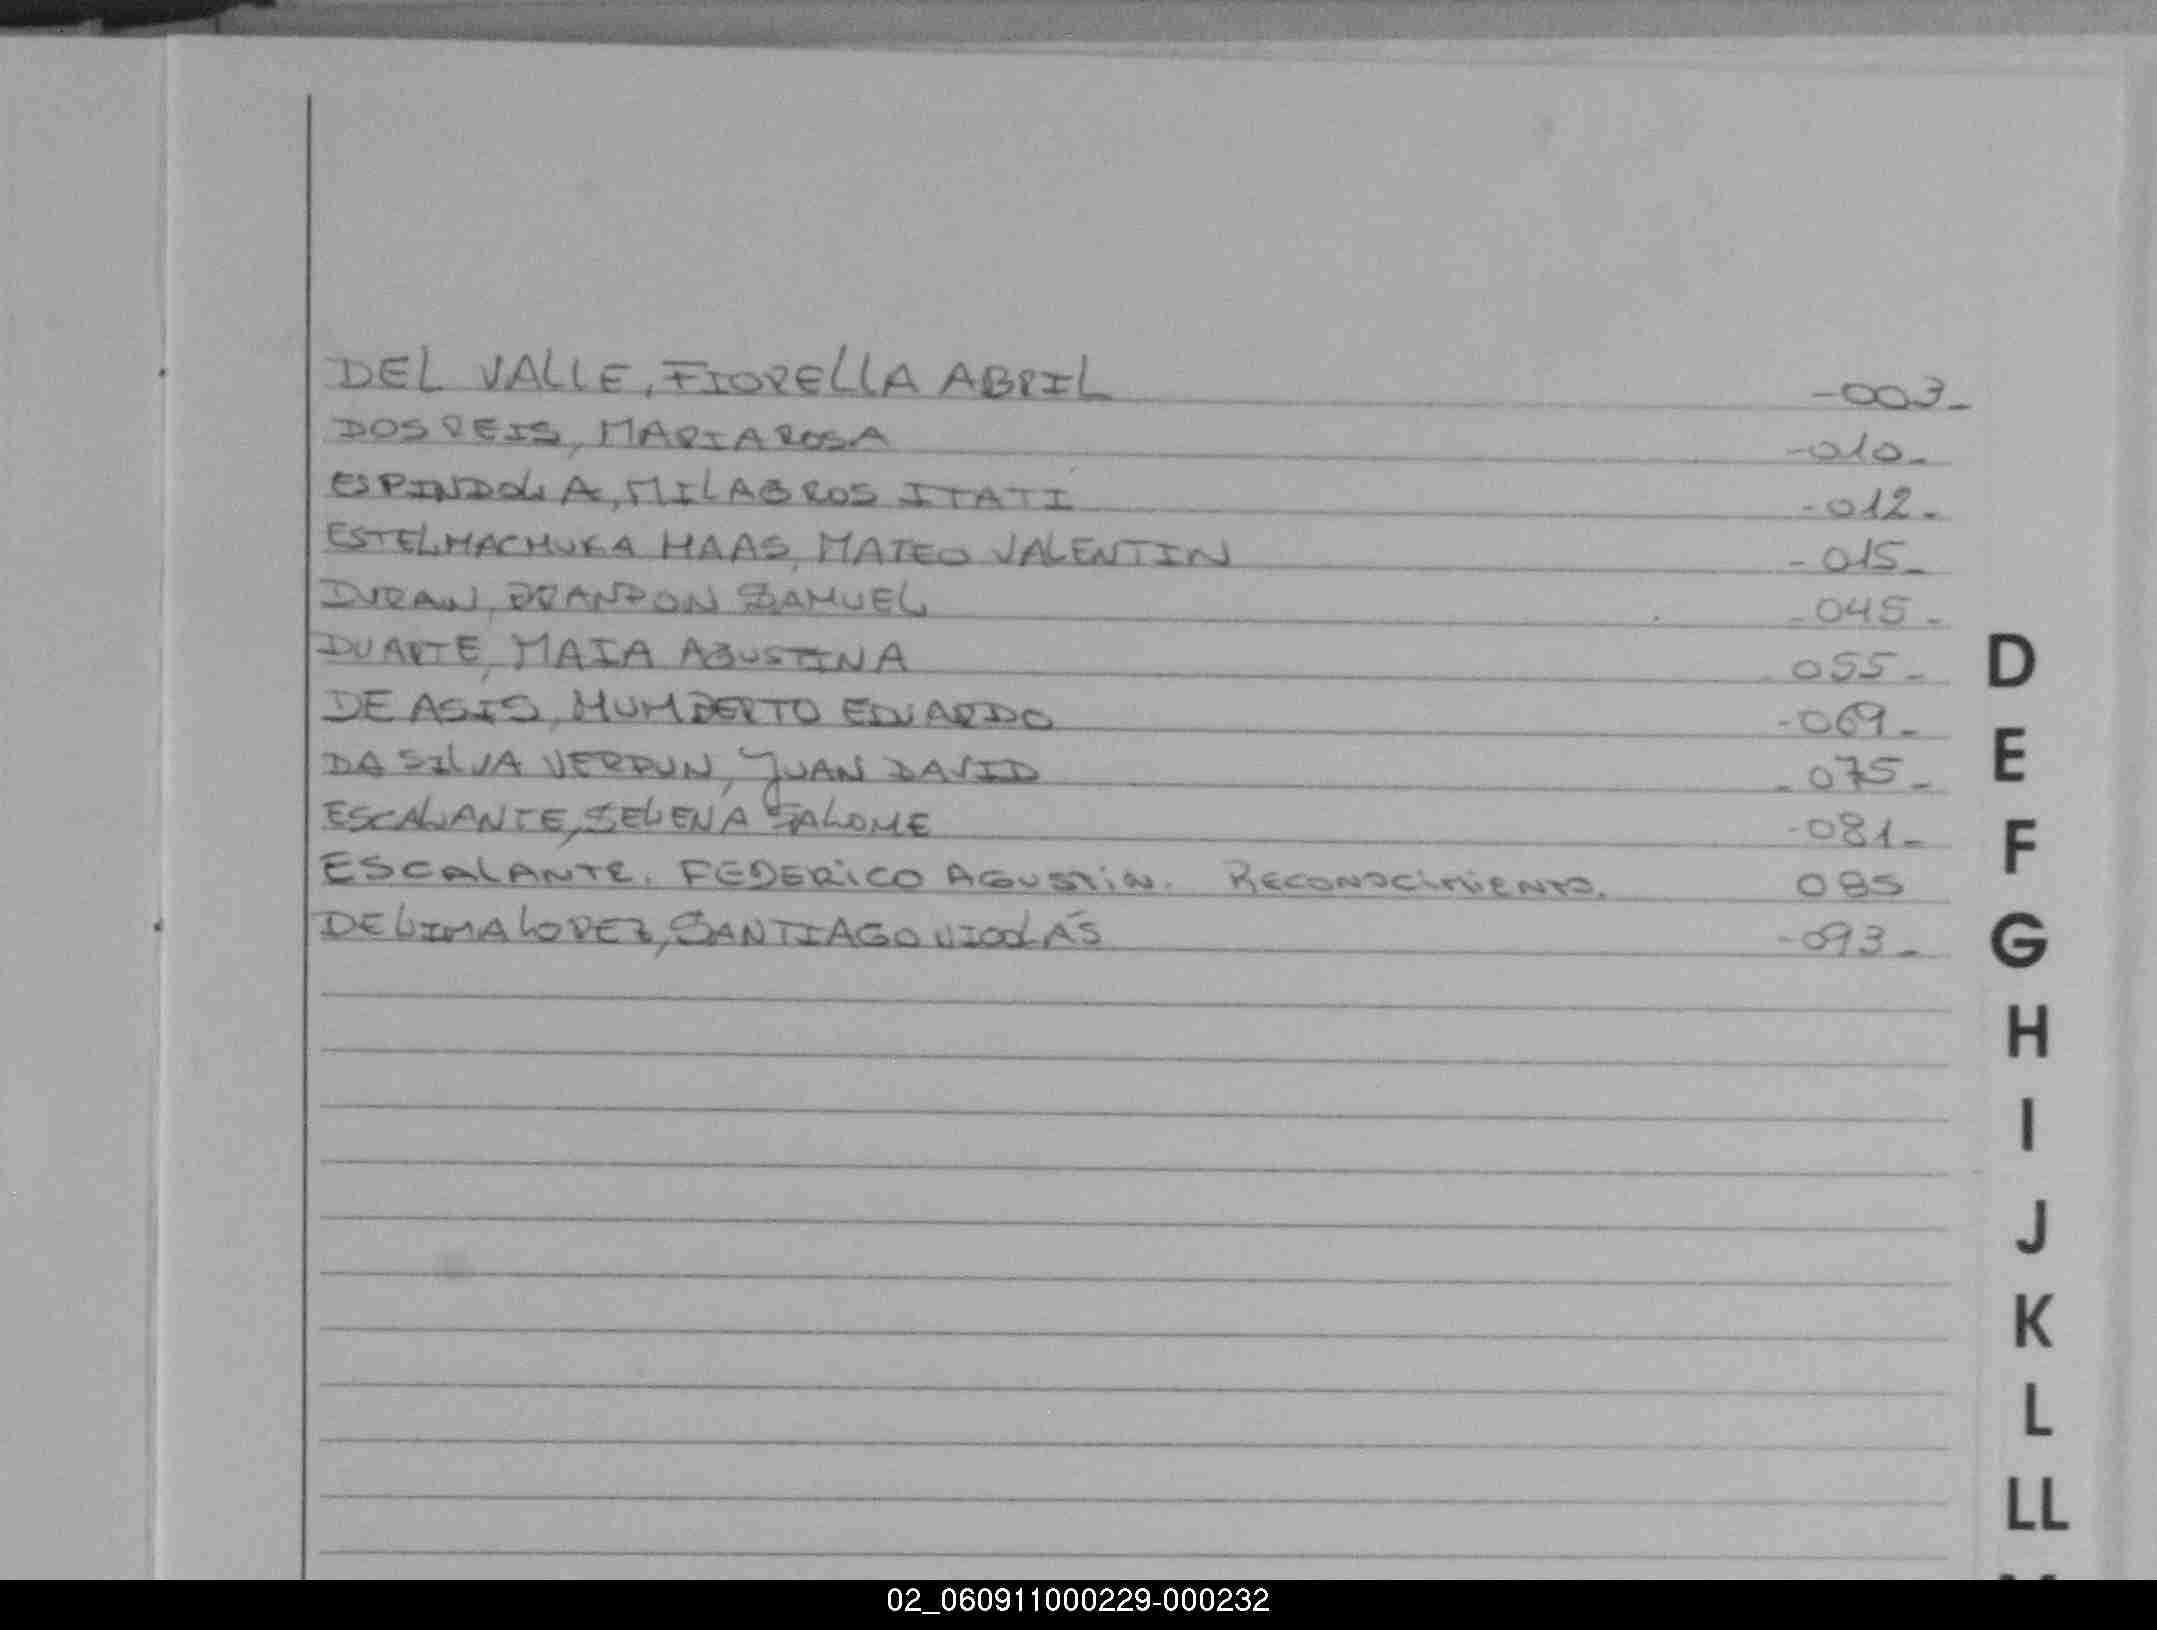 DEL VALLE, FIORELLA ABRIL -003-
DOS REIS, MARIA ROSA -010-
ESPINDOLA, MILAGROS ITATI -012-
ESTELMACHUKA HAAS, MATEO VALENTIN -015-
DURAN, BRANDON SAMUEL -045-
DUARTE, MAIA AGUSTINA -055-
DE ASIS, HUMBERTO EDUARDO -069-
DA SILVA VERDUN, JUAN DAVID -075-
ESCALANTE, SELENA SALOME -081-
ESCALANTE. FEDERICO AGUSTIN. RECONOCIMIENTO. 085
DE LIMA LOPEZ, SANTIAGO NICOLÁS -093-
D
E
F
G
H
I
J
K
L
LL
02_060911000229-000232